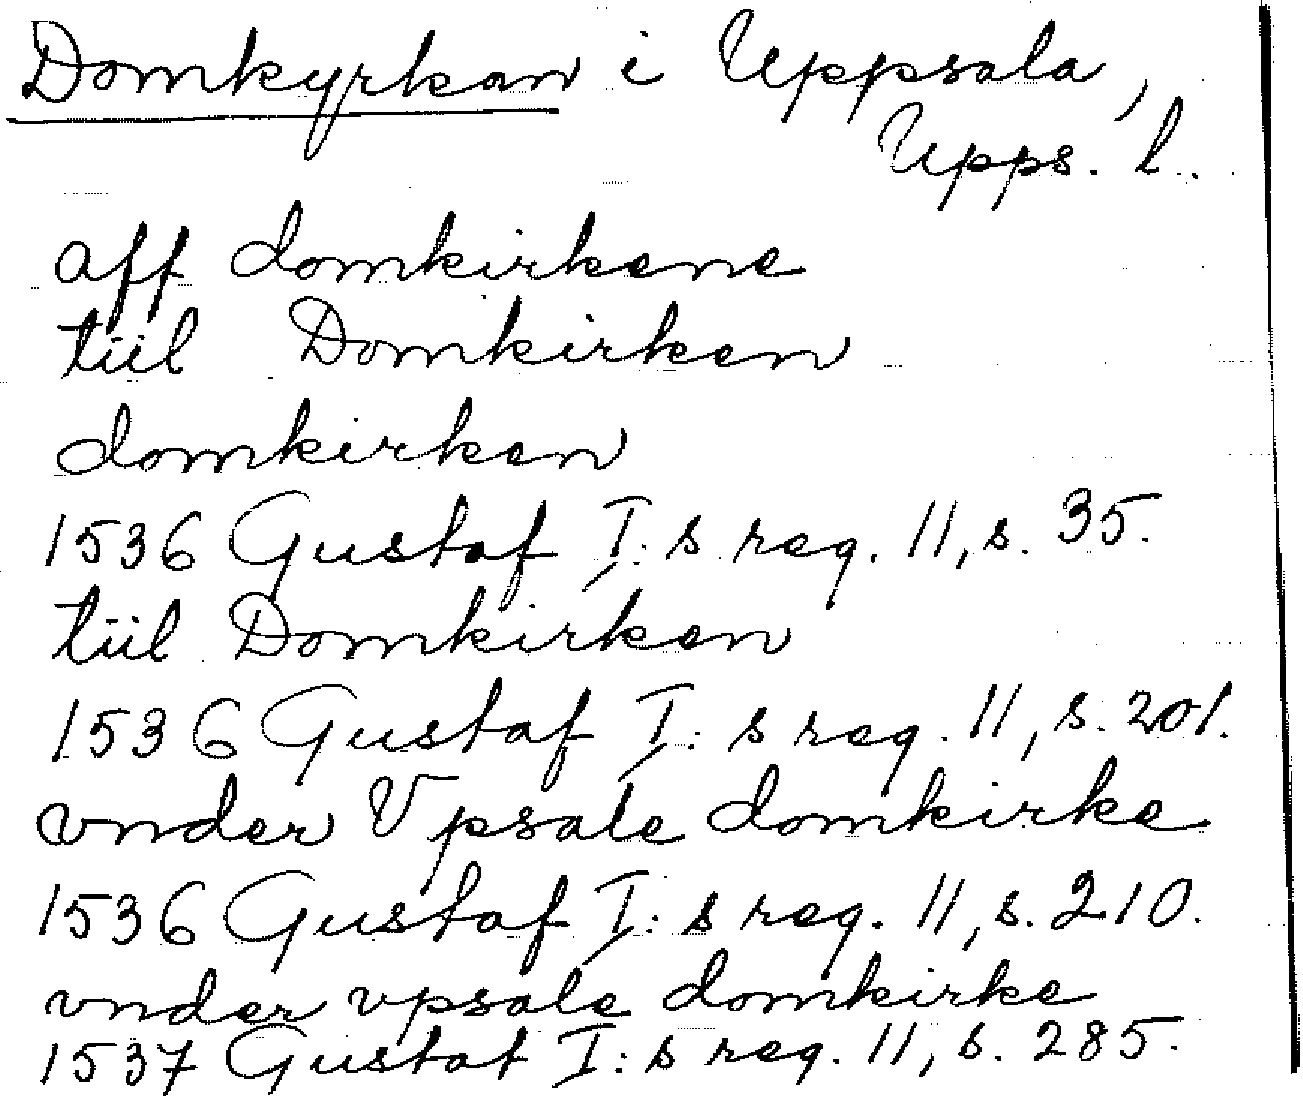 Domkyrkan i Uppsala,
Upps. l.
aff domkirkene
tiil Domkirken
domkirken
1536 Gustaf I: s reg. 11, s. 35.
tiil Domkirken
1536 Gustaf I: s reg. 11, s. 201.
vnder Vpsale domkirke
1536 Gustaf I: s reg. 11, s. 210.
vnder vpsale domkirke
1537 Gustaf I: s reg. 11, s. 285.